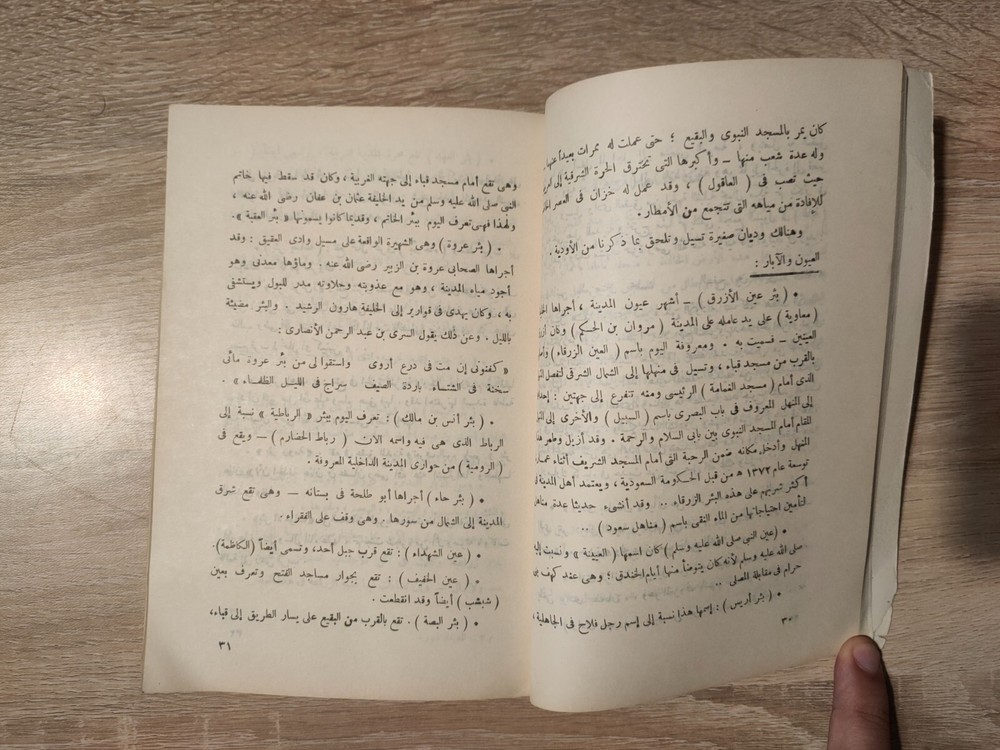 كان يمر بالمسجد النبوى والبقيع ؛ حتى عملت له ممرات بعيداً عنها
وله عدة شعب منها ــ وأكبرها التى تخترق الحرة الشرقية إلى
حيث تصب فى ( العاقول ) ، وقد عمل له خزان فى العصر
للإفادة من مياهه التى تتجمع من الأمطار .
وهنالك وديان صغيرة تسيل وتلحق بما ذكرنا من الأودية .
العيون والآبار :
• ( بئر عين الأزرق ) ــ أشهر عيون المدينة ، أجراها
( معاوية ) على يد عامله على المدينة ( مروان بن الحكم ) وكان أزرق
العينين ــ فسميت به . ومعروفة اليوم باسم ( العين الزرقاء )
بالقرب من مسجد قباء ، وتسيل فى منهلها إلى الشمال الشرقى لتفصل
الذى أمام ( مسجد الغمامة ) الرئيسى ومنه تتفرع إلى جهتين :
إلى المنهل المعروف فى باب البصرى باسم ( السبيل ) والأخرى إلى
المقام أمام المسجد النبوى بين بابى السلام والرحمة . وقد أزيل وطهر
المنهل وأدخل مكانه ضمن الرحبة التى أمام المسجد الشريف أثناء
توسعة عام ١٣٧٢ ه من قبل الحكومة السعودية ، ويعتمد أهل المدينة
أكثر شربهم على هذه البئر الزرقاء .. وقد أنشىء حديثا عدة
لتأمين احتياجاتها من الماء النقى باسم ( مناهل سعود ) ..
• ( عين النبى صلى الله عليه وسلم ) كان اسمها ( العيينة » ونسبت
صلى الله عليه وسلم لأنه كان يتوضأ منها أيام الخندق ؛ وهى عند كهف بنى
حرام فى مقابلة المصلى ..
• ( بئر أريس ) : إسمها هذا نسبة إلى إسم رجل فلاح فى الجاهلية
٣٠
وهى تقع أمام مسجد قباء إلى جهته الغربية ، وكان قد سقط فيها خاتم
النبى صلى الله عليه وسلم من يد الخليفة عثمان بن عفان رضى الله عنه ،
ولهذا فهى تعرف اليوم ببئر الخاتم ، وقديما كانوا يسمونها « بئر العقبة ».
• ( بئر عروة ) وهى الشهيرة الواقعة على مسيل وادى العقيق : وقد
أجراها الصحابى عروة بن الزبير رضى الله عنه . وماؤها معدنى وهو
أجود مياه المدينة ، وهو مع عذوبته وحلاوته مدر للبول ويستشفى
به ، وكان يهدى فى قوارير إلى الخليفة هارون الرشيد . والبئر مضيئة
بالليل . وعن ذلك يقول السرى بن عبد الرحمن الأنصارى :
« كفنونى إن مت فى درع أروى واستقوا لى من بئر عروة مائى
سخنة فى الشتاء باردة الصيف سراج فى الليل الظلماء » .
• ( بئر أنس بن مالك ) : تعرف اليوم ببئر « الرباطية » نسبة إلى
الرباط الذى هى فيه واسمه الان ( رباط الحضارم ) ــ ويقع فى
( الرومية ) من حوارى المدينة الداخلية المعروفة .
• ( بئر حاء ) أجراها أبو طلحة فى بستانه ــ وهى تقع شرق
المدينة إلى الشمال من سورها . وهى وقف على الفقراء .
• ( عين الشهداء ) : تقع قرب جبل أحد، وتسمى أيضاً (الكاظمة).
• ( عين الخفيف ) : تقع بجوار مساجد الفتح وتعرف بعين
( شبشب ) أيضاً وقد انقطعت .
• ( بئر البصة ) . تقع بالقرب من البقيع على يسار الطريق إلى قباء،
٣١